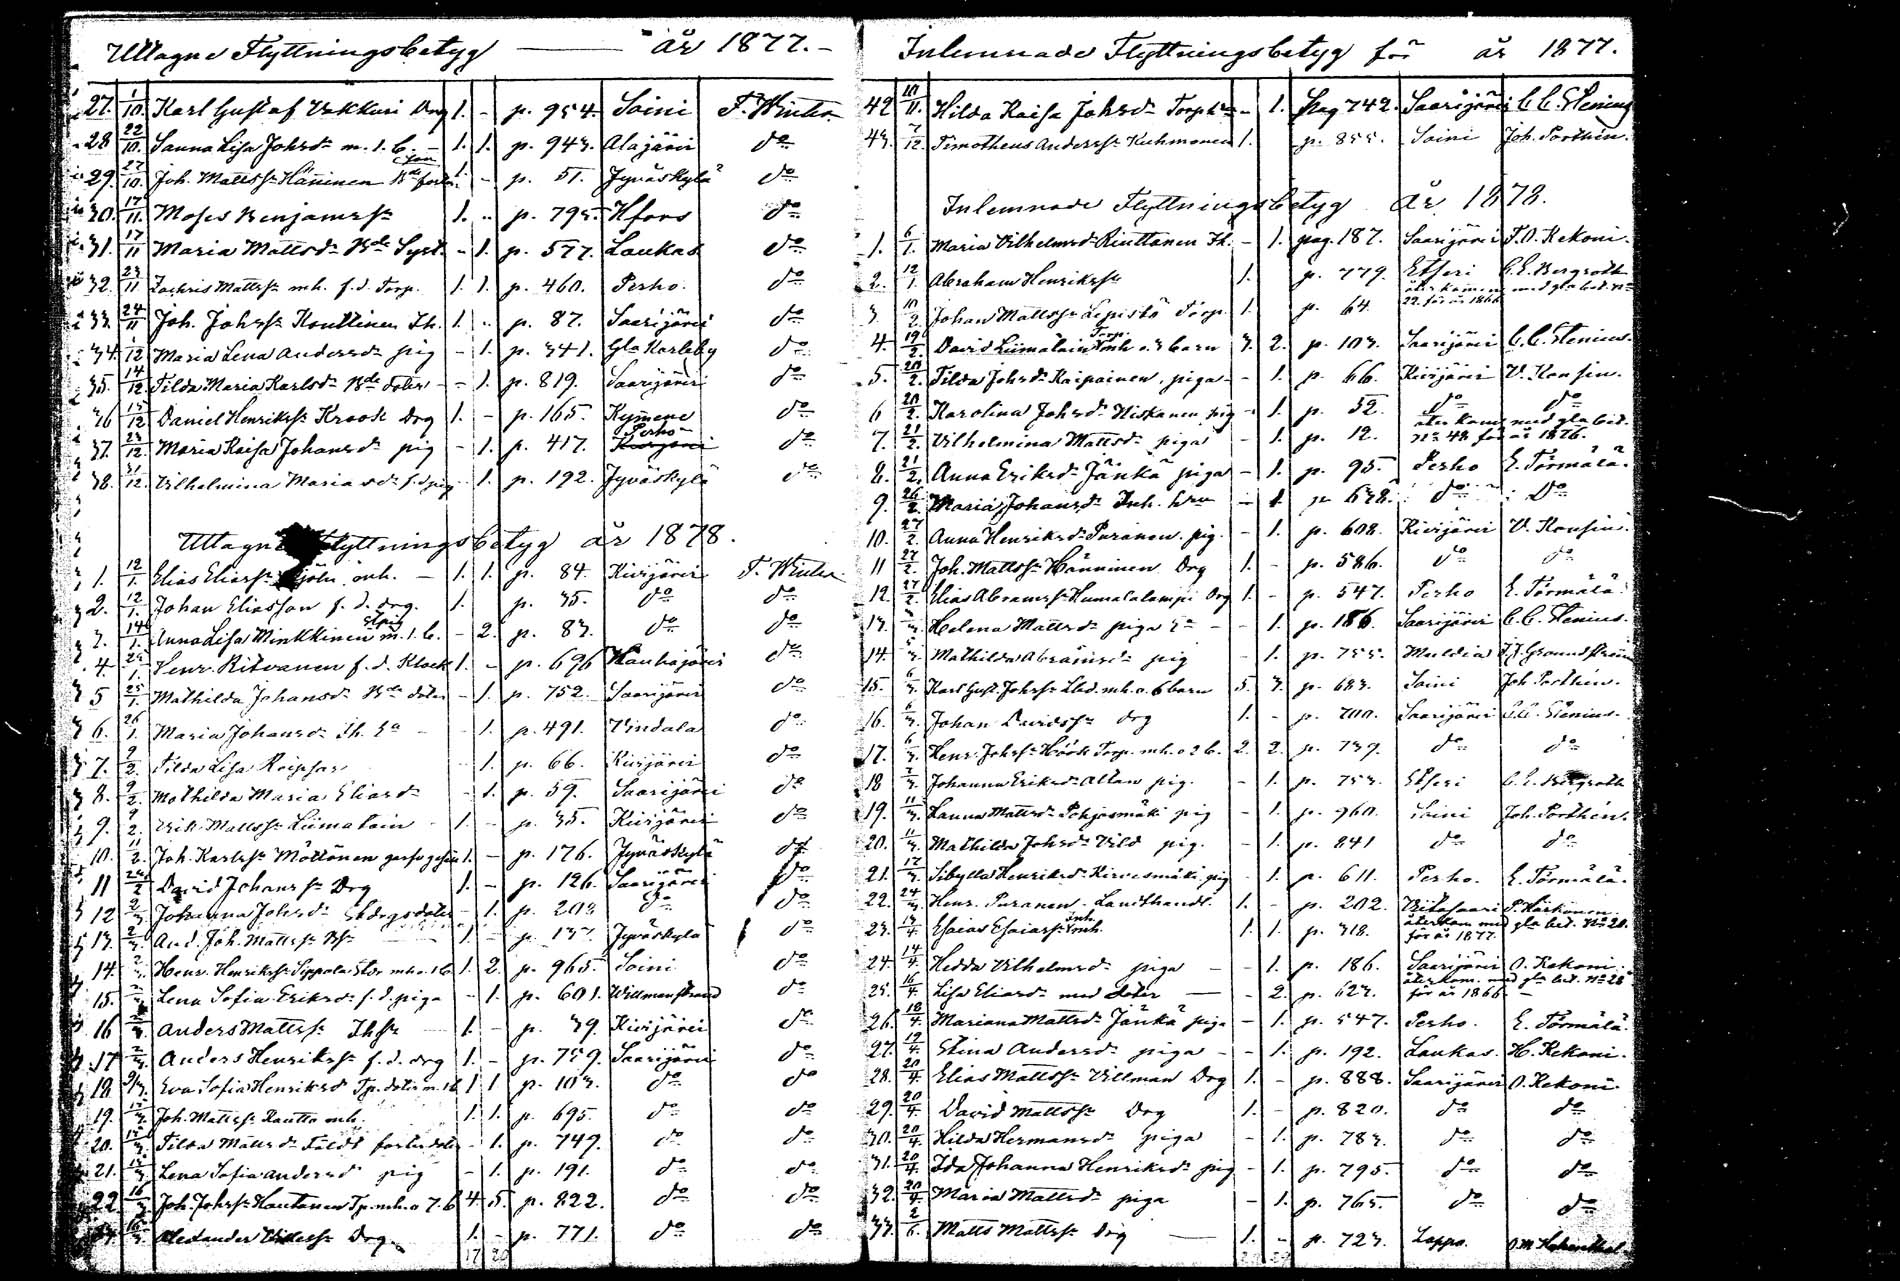 Uttagne Flyttningsbetyg — år 1877.-
27. 1/10. Karl Gustaf Vakkuri Drg 1. - p. 954. Soini F. Winter
28 22/10. Sanna Lisa Johsdr m. 1. b. - 1. 1. p. 943. Alajärvi do
29. 27/10. Joh. Mattss Hänninen p. 51. Jyväskylä do
30. 17/11. Moses Benjamss 1. " p. 795. Hfors do
31. 17/11 Maria Mattsdr Bde Syst. - 1. p. 577. Laukas do
32. 23/11 Zachris Mattss mh. f.d. Torp. 1. 1. p. 460. Perho. do
33. 24/11 Joh. Johss Kouttinen Ih. 1. " p. 87. Saarijärvi do
34. 1/12 Maria Lena Andersdr pig - 1. p. 341. Gla Karleby do
35. 14/12. Tilda Maria Karlsdr Bde doter - 1. p. 819. Saarijärvi do
36 15/12 Daniel Henrikss Krook Drg 1. - p. 165. Kymene do
37. 23/12. Maria Kaisa Johansdr pig - 1. p. 417. Perho do
38. 31/12. Vilhelmina Maria - 1. p. 192. Jyväskylä do
Uttagne Flyttningsbetyg år 1878.
1. 12/1. Elias Eliass mh. - 1. 1. p. 84. Kivijärvi F. Winter
2. 12/1. Johan Eliasson f. d. drg. 1. p. 35. do do
3. 14/1. Anna Lisa Minkkinen m. 1. b. - 2. p. 83. do do
4. 1. Henr. Ritvanen f. d. Klock 1. - p. 696 Kauhajärvi do
5 25/1. Mathilda Johansdr Bde doter - 1. p. 752. Saarijärvi do
6. 26/1. Maria Johansdr Ih. - 1. p. 491. Vindala do
7. 9/2. Tilda Lisa 1. p. 66. Kivijärvi do
8. 9/2. Mathilda Maria Eliasdr - 1. p. 59. Saarijärvi do
9. 9/2. Erik Mattss Liimatain 1. - p. 35. Kivijärvi do
10. 11/2. Joh. Karlss Möttönen 1. - p. 176. Jyväskylä do
11 David Johanss Drg 1. - p. 126. Saarijärvi do
12 Johanna Johsdr - 1. p. 203 do do
13. And. Joh. Mattss 1. - p. 137. Jyväskylä do
14. Henr. Henrikss Sippola 1. 2. p. 965. Soini do
15. Lena Sofia Eriksdr f. d. piga - 1. p. 601. Willmanstrand do
16 Anders Mattss 1. - p. 39. Kivijärvi do
17 Anders Henrikss f. d. drg 1. - p. 759. Saarijärvi do
18 Eva Sofia Henriksd 1 1 p. 103. do do
19. Joh. Mattss Rautto mh. 1. 1. p. 695. do do
20. Tilda Mattsdr Fäldt - 1. p. 749. do do
21. Lena Sofia Andersd pig - 1. p. 191. do do
22. 16/3 Joh. Johss Hautanen Tp. mh. o 7. b 4. 5. p. 822. do do
Alexander Drg. 1. - p. 771. do do
17 20
Inlemnade Flyttningsbetyg för år 1877.
42 10/11. Hilda Kaisa Johsdr - 1. Pag 742. Saarijärvi C. C. Stenius
43. 7/12. Timotheus Anderss Kuhmonen 1. p. 855. Soini Joh. Porthén.
Inlemnade Flyttningsbetyg år 1878.
1. 6/1. Maria Vilhelmsdr Riuttanen Ih. - 1. pag. 187. Saarijärvi O. Rekoni.
2. 12/1. Abraham Henrikss 1. p. 779. Etseri C. E. Bergroth
återkommen med gla bet. No 22. för år 1866
3 10/2. Johan Mattss Lepistö Torp. 1. p. 64.
4. 19/2. David Liimatain Torp. mh o. 3 barn 3. 2. p. 103. Saarijärvi C. C. Stenius.
5. 20/2. Tilda Johsdr Kaipainen, piga - 1. p. 66. Kivijärvi V. Konsin.
6 20/2. Karolina Johsdr Hiskanen pig - 1. p. 52. do do
7. 21/2. Vilhelmina Mattsdr piga - 1. p. 12. återkom med gla bet. No 48 för år 1876.
8. 21/2. Anna Eriksdr Jänkä piga - 1. p. 95. Perho E. Törmälä.
9. 26/2. Maria Johansdr Inh. - 1 p. 638. do Do
10. 27/2. Anna Henriksdr Puranen. pig. - 1. p. 608. Kivijärvi V. Konsin.
11 27/2. Joh. Mattss Hänninen Drg 1. - p. 586. do do
12. 27/2. Elias Abramss Humalalampi Drg 1. - p. 547. Perho E. Törmälä.
13. Helena Mattsdr piga - 1. p. 186. Saarijärvi C. C. Stenius.
14. Mathilda Abramsdr pig - 1. p. 755. Muldia Granndström
15. Karl Gust. Johss mh. o. 6 barn 5. 3. p. 683. Soini Joh. Porthén.
16. Johan Davidss drg 1. - p. 700. Saarijärvi C. C. Stenius.
17. Henr. Johss Höök Torp. mh. o 2 b. 2. 2. p. 739. do do
18 Johanna Eriksdr Allan pig. - 1. p. 753. Etseri C. E. Bergroth
19. 11/3. Sanna Mattsdr Pohjasmäki pig - 1. p. 960. Soini Joh. Porthén.
20. 11/3. Mathilda Johsdr Vild pig. - 1. p. 841 do do
21. 17/3. Sibylla Henriksdr Kirvesmäki pig - 1. p. 611. Perho. E. Törmälä.
22. 24/3. Henr. Puranen. Landthandl. 1. - p. 202. Viitasaari P. Härkönen
23. Esaias Esaiass mh. 1. 1. p. 318. återkom med gla bet. No 20. för år 1877.
24. 14/4. Hedda Vilhelmsdr piga - 1. p. 186. Saarijärvi O. Rekoni.
25. 16/4. Lisa Eliasdr med doter — - 2. p. 623. återkom. med gla bet. No 28 för år 1866. -
26. 18/4. Mariana Mattsdr Jänkä piga - 1. p. 547. Perho. E. Törmälä.
27. 19/4. Stina Andersdr piga - - 1. p. 192. Laukas. H. Rekoni.
28. 20/4. Elias Mattss Villman Drg 1. - p. 888. Saarijärvi O. Rekoni.
29. 20/4. David Mattss Drg 1. - p. 820. do do
30. 20/4. Hilda Hermansdr piga - 1. p. 783. do do
31. 20/4. Ida Johanna Henriksdr pig - 1. p. 795. do do
32. 20/4. Maria Mattsdr piga - 1. p. 765. do do
33. 2/6. Matts Mattss Drg — 1. - p. 723. Lappo.